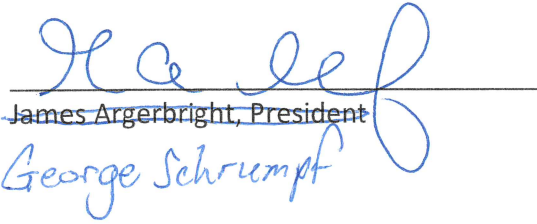 James Argerbright, President
George Schrumpf